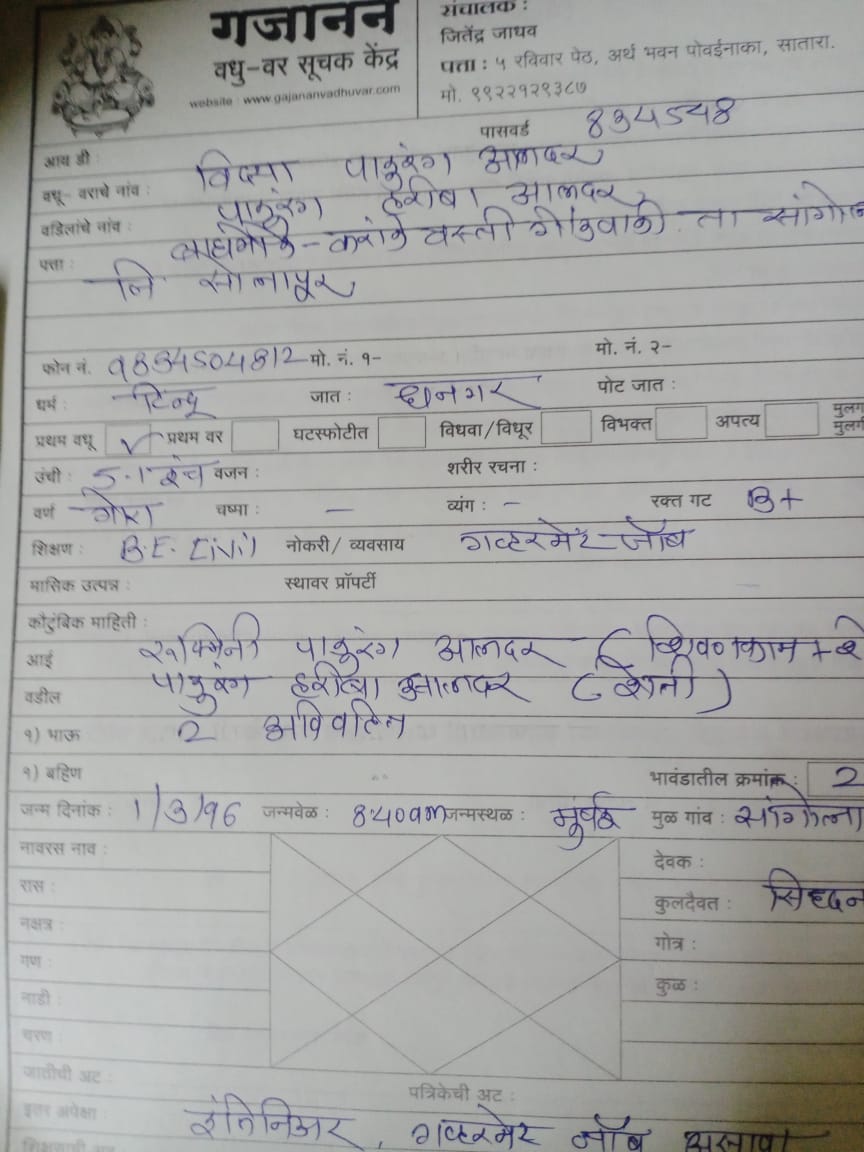 गजानन
वधु-वर सूचक केंद्र
website : www.gajananvadhuvar.com
संचालक :
जितेंद्र जाधव
पत्ता : ५ रविवार पेठ, अर्थ भवन पोवईनाका, सातारा.
मो. ९९२२१२९३८७
आय डी : पासवर्ड 834548
वधू- वराचे नांव : विद्या पांडुरंग आलदर
वडिलांचे नांव : पांडुरंग हरीबा आलदर
पत्ता : वस्ती ता सांगोल
जि सोलापूर
फोन नं. 9834504812 मो. नं. १- मो. नं. २-
धर्म : हिन्दू जात : धनगर पोट जात :
प्रथम वधू ✓ प्रथम वर घटस्फोटीत विधवा/विधूर विभक्त अपत्य मुलग
मुलगी
उंची : 5.1 इंच वजन : शरीर रचना :
वर्ण गोरा चष्मा : – व्यंग : – रक्त गट B+
शिक्षण : B.E. Civil नोकरी/ व्यवसाय गव्हरमेंट जॉब
मासिक उत्पन्न : स्थावर प्रॉपर्टी
कौटुंबिक माहिती :
आई रुक्मिनी पांडुरंग आलदर ( शिवणकाम + शे
वडील पांडुरंग हरीबा आलदर ( शेती )
१) भाऊ 2 अविवाहित
१) बहिण भावंडातील क्रमांक : 2
जन्म दिनांक : 1/3/96 जन्मवेळ : 8:40am जन्मस्थळ : मुंबई मुळ गांव : सांगोला
नावरस नाव : देवक :
रास : कुलदैवत :
नक्षत्र : गोत्र :
गण : कुळ :
नाडी :
चरण :
जातीची अट : पत्रिकेची अट :
इतर अपेक्षा : इंजिनिअर, गव्हरमेंट जॉब असावा